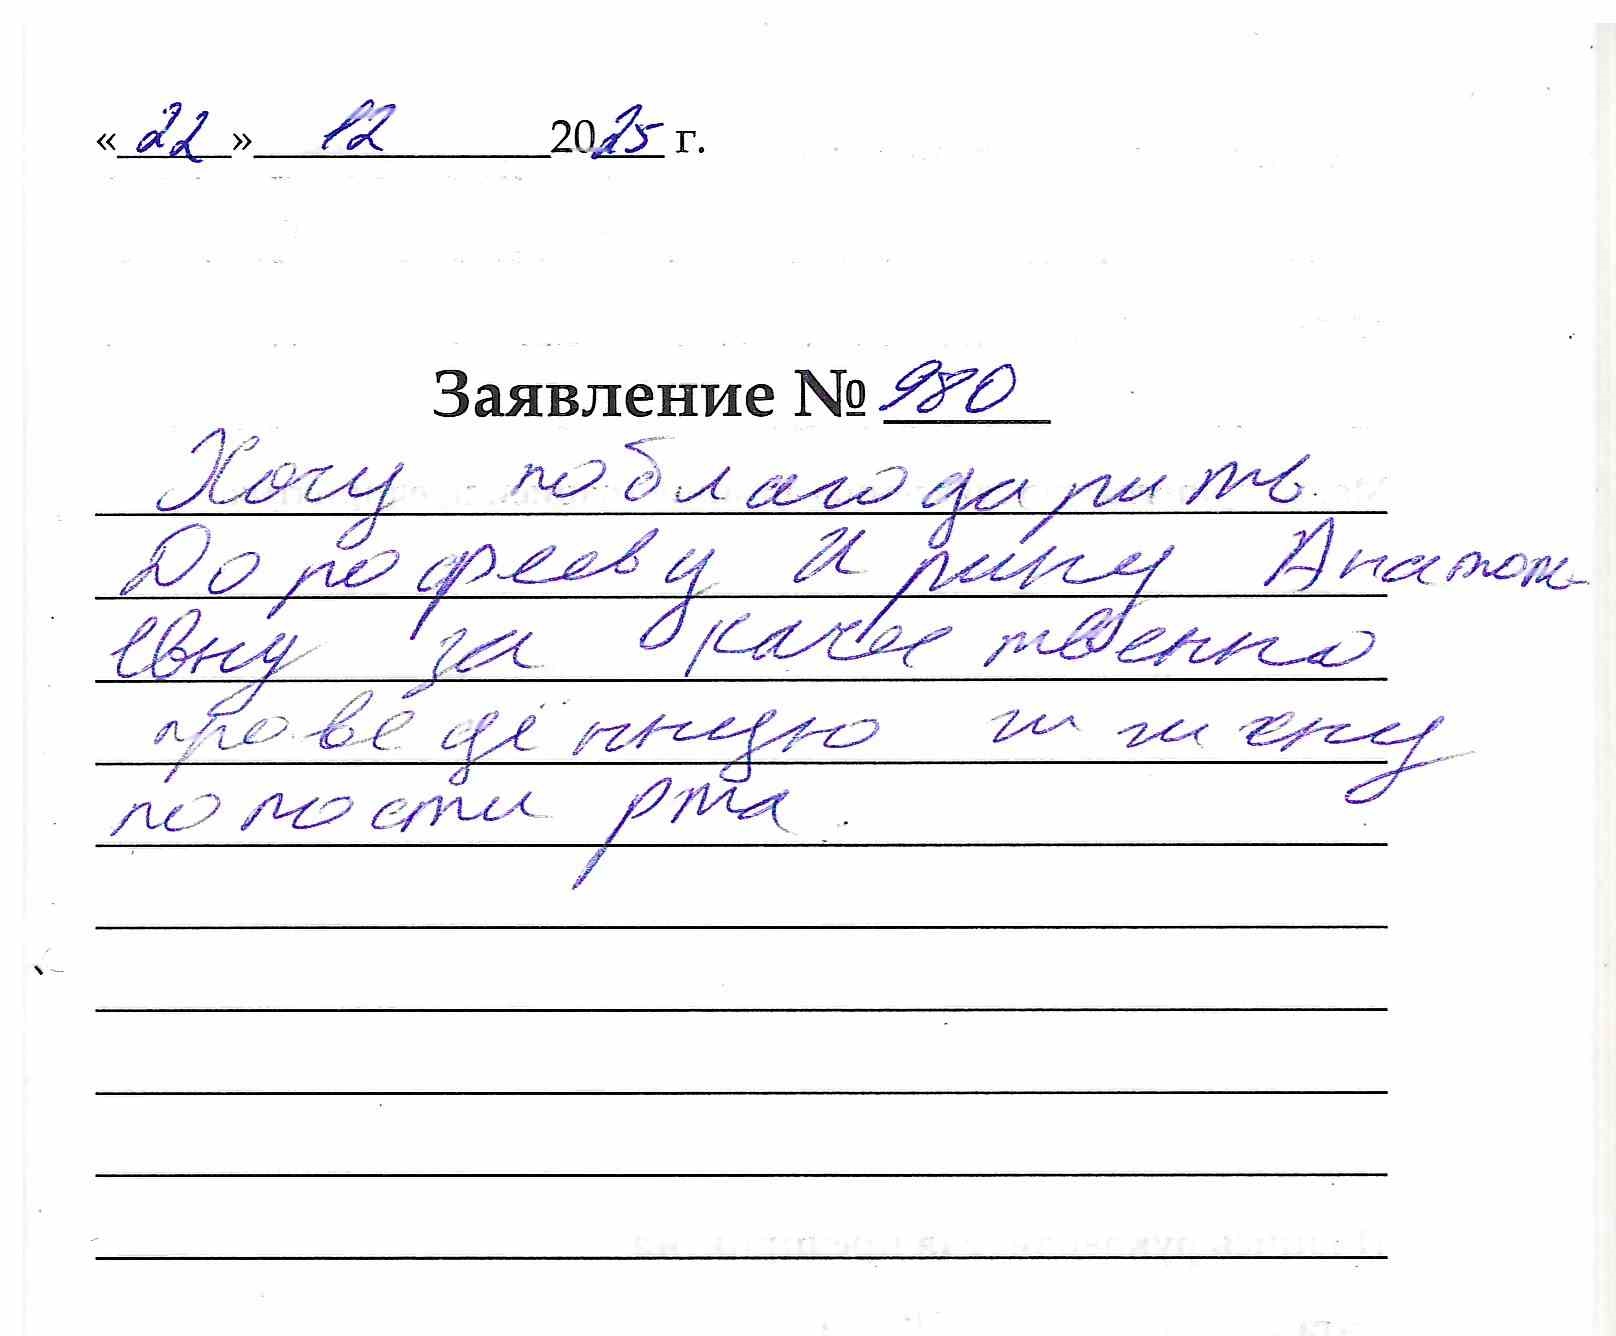 «22» 12 2025 г.
Заявление № 980
Хочу поблагодарить
Дорофееву Ирину Анатоль-
евну за качественно
проведённую гигиену
полости рта.